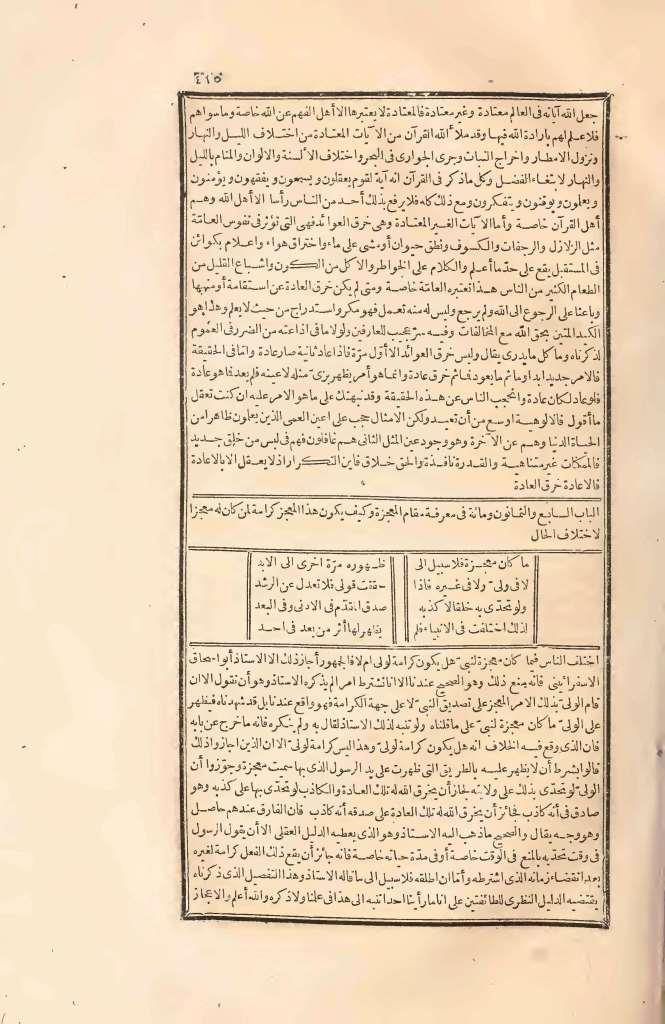 ٤١٥
جعل الله آياته فى العالم معتادة وغير معتادة فالمعتادة لا يعتبرها الا أهل الفهم عن الله خاصة وما سواهم
فلا علم لهم بارادة الله فيها وقد ملأ الله القرآن من الآيات المعتادة من اختلاف الليل والنهار
ونزول الامطار واخراج النبات وجرى الجوارى فى البحر واختلاف الألسنة والالوان والمنام بالليل
والنهار لابتغاء الفضل وكل ما ذكر فى القرآن انه آية لقوم يعقلون ويسمعون ويفقهون ويؤمنون
ويعلمون ويوقنون ويتفكرون ومع ذلك كله فلا يرفع بذلك أحد من الناس رأسا الا أهل الله وهم
أهل القرآن خاصة وأما الآيات الغير المعتادة وهى خرق العوائد فهى التى تؤثر فى نفوس العامّة
مثل الزلازل والرجفات والكسوف ونطق حيوان أو مشى على ماء واختراق هواء واعلام بكوائن
فى المستقبل يقع على حدّ ما أعلم والكلام على الخواطر والاكل من الكون واشباع القليل من
الطعام الكثير من الناس هذا تعتبره العامّة خاصة ومتى لم يكن خرق العادة عن استقامة أو منبها
وباعثا على الرجوع الى الله ولم يرجع وليس له منه تعمل فهو مكر واستدراج من حيث لا يعلم وهذا هو
الكيد المتين بحق الله مع المخالفات وفيه سرّ عجيب للعارفين ولولا ما فى اذاعته من الضرر فى العموم
لذكرناه وما كل ما يدرى يقال وليس خرق العوائد الا أوّل مرّة فاذا عاد ثانية صار عادة وأمّا فى الحقيقة
فالامر جديد ابدا وما ثم ما يعود فما ثم خرق عادة وانما هو أمر يظهر بزىّ مثله لا عينه فلم يعد فما هو عادة
فلو عاد لكان عادة وانحجب الناس عن هذه الحقيقة وقد نبهتك على ما هو الامر عليه ان كنت تعقل
ما أقول فالالوهية أوسع من أن تعيد ولكن الامثال حجب على أعين العمى الذين يعلمون ظاهرا من
الحياة الدنيا وهم عن الآخرة وهو وجود عين المثل الثانى هم غافلون فهم فى لبس من خلق جديد
فالممكنات غير متناهية والقدرة نافذة والحق خلاق فاين التكرار اذ لا يعقل الا بالاعادة
فالاعادة خرق العادة
الباب السابع والثمانون ومائة فى معرفة مقام المعجزة وكيف يكون هذا المعجز كرامة لمن كان له معجزا
لاختلاف الحال
ما كان معجزة فلا سبيل الى ظهوره مرّة اخرى الى الابد
لا فى ولىّ ولا فى غيره فاذا حققت قولى فلا تعدل عن الرشد
ولو تحدّى به خلقا لاكذبه صدق المقدّم فى الادنى وفى البعد
لذلك اختلفت فى الانبياء فلم يظهر لها أثر من بعد فى احد
اختلف الناس فيما كان معجزة لنبىّ هل يكون كرامة لولى ام لا فالجمهور أجاز ذلك الا الاستاذ أبو اسحاق
الاسفراينى فانه يمنع ذلك وهو الصحيح عندنا الا انا نشترط امرا لم يذكره الاستاذ وهو أن نقول الا ان
قام الولى بذلك الامر المعجز على تصديق النبىّ لا على جهة الكرامة فهو واقع عندنا بل قد شهدناه فيظهر
على الولىّ ما كان معجزة لنبىّ على ما قلناه ولو تنبه لذلك الاستاذ لقال به ولم ينكره فانه ما خرج عن بابه
فان الذى وقع فيه الخلاف انه هل يكون كرامة لولىّ وهذا ليس كرامة لولىّ الا ان الذين اجازوا ذلك
قالوا بشرط أن لا يظهر عليه بالطريق التى ظهرت على يد الرسول الذى بها سميت معجزة وجوّزوا أن
الولىّ لو تحدّى بذلك على ولايته لجاز أن يخرق الله له تلك العادة والكاذب لو تحدّى بها على كذبه وهو
صادق فى أنه كاذب لجائز أن يخرق الله له تلك العادة على صدقه أنه كاذب فان الفارق عندهم حاصل
وهو وجه يقال والصحيح ما ذهب اليه الاستاذ وهو الذى يعطيه الدليل العقلى الا أن يقول الرسول
فى وقت تحدّيه بالمنع فى الوقت خاصة أو فى مدّة حياته خاصة فانه جائز أن يقع ذلك الفعل كرامة لغيره
بعد انقضاء زمانه الذى اشترطه وأما ان اطلقه فلا سبيل الى ما قاله الاستاذ وهذا التفصيل الذى ذكرناه
يقتضيه الدليل النظرى للطائفتين على انا ما رأينا احدا تنبه الى هذا فى علمنا ولا ذكره والله أعلم والاعجاز